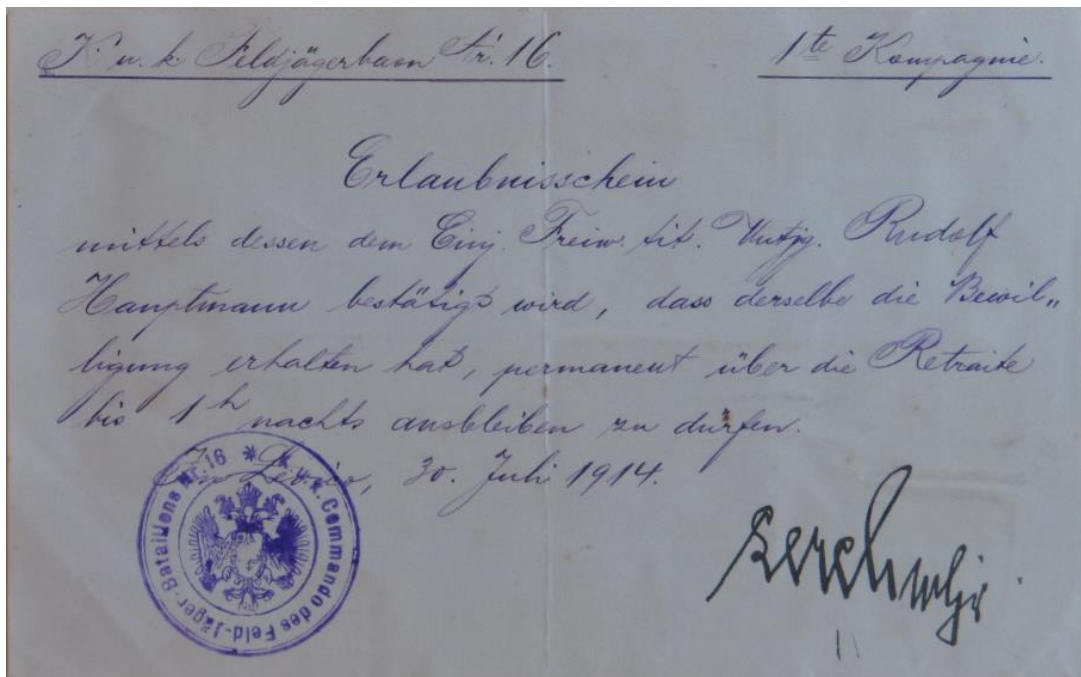 K. u. k. Feldjägerbaon Nr. 16. 1te Kompagnie.
Erlaubnisschein
mittels dessen dem Einj. Freiw. tit. Utjg. Rudolf
Hauptmann bestätigt wird, dass derselbe die Bewil„
ligung erhalten hat, permanent über die Retraite
bis 1h nachts ausbleiben zu dürfen.
Levico, 30. Juli 1914.
* K. u. k. Commando des Feld-Jäger-Bataillons Nr. 16